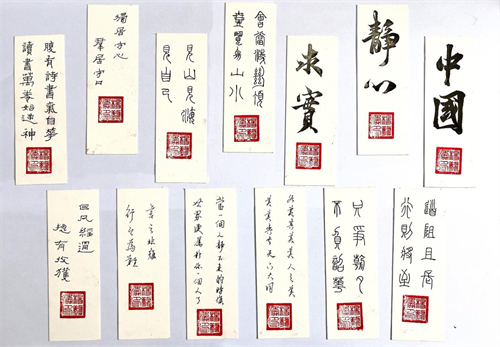 腹有詩書氣自華
讀書萬卷始通神
獨居守心
群居守口
見山見
見自己
會當凌絕頂
壹覽眾山小
求實
靜心
中國
凡經過
總有收獲
言之非難
行之為難
當一個人靜下來的時候
世界便屬於你一個人了
各美其美美人之美
美美與共天下大同
只爭朝夕
不負韶華
道阻且長
行則將至